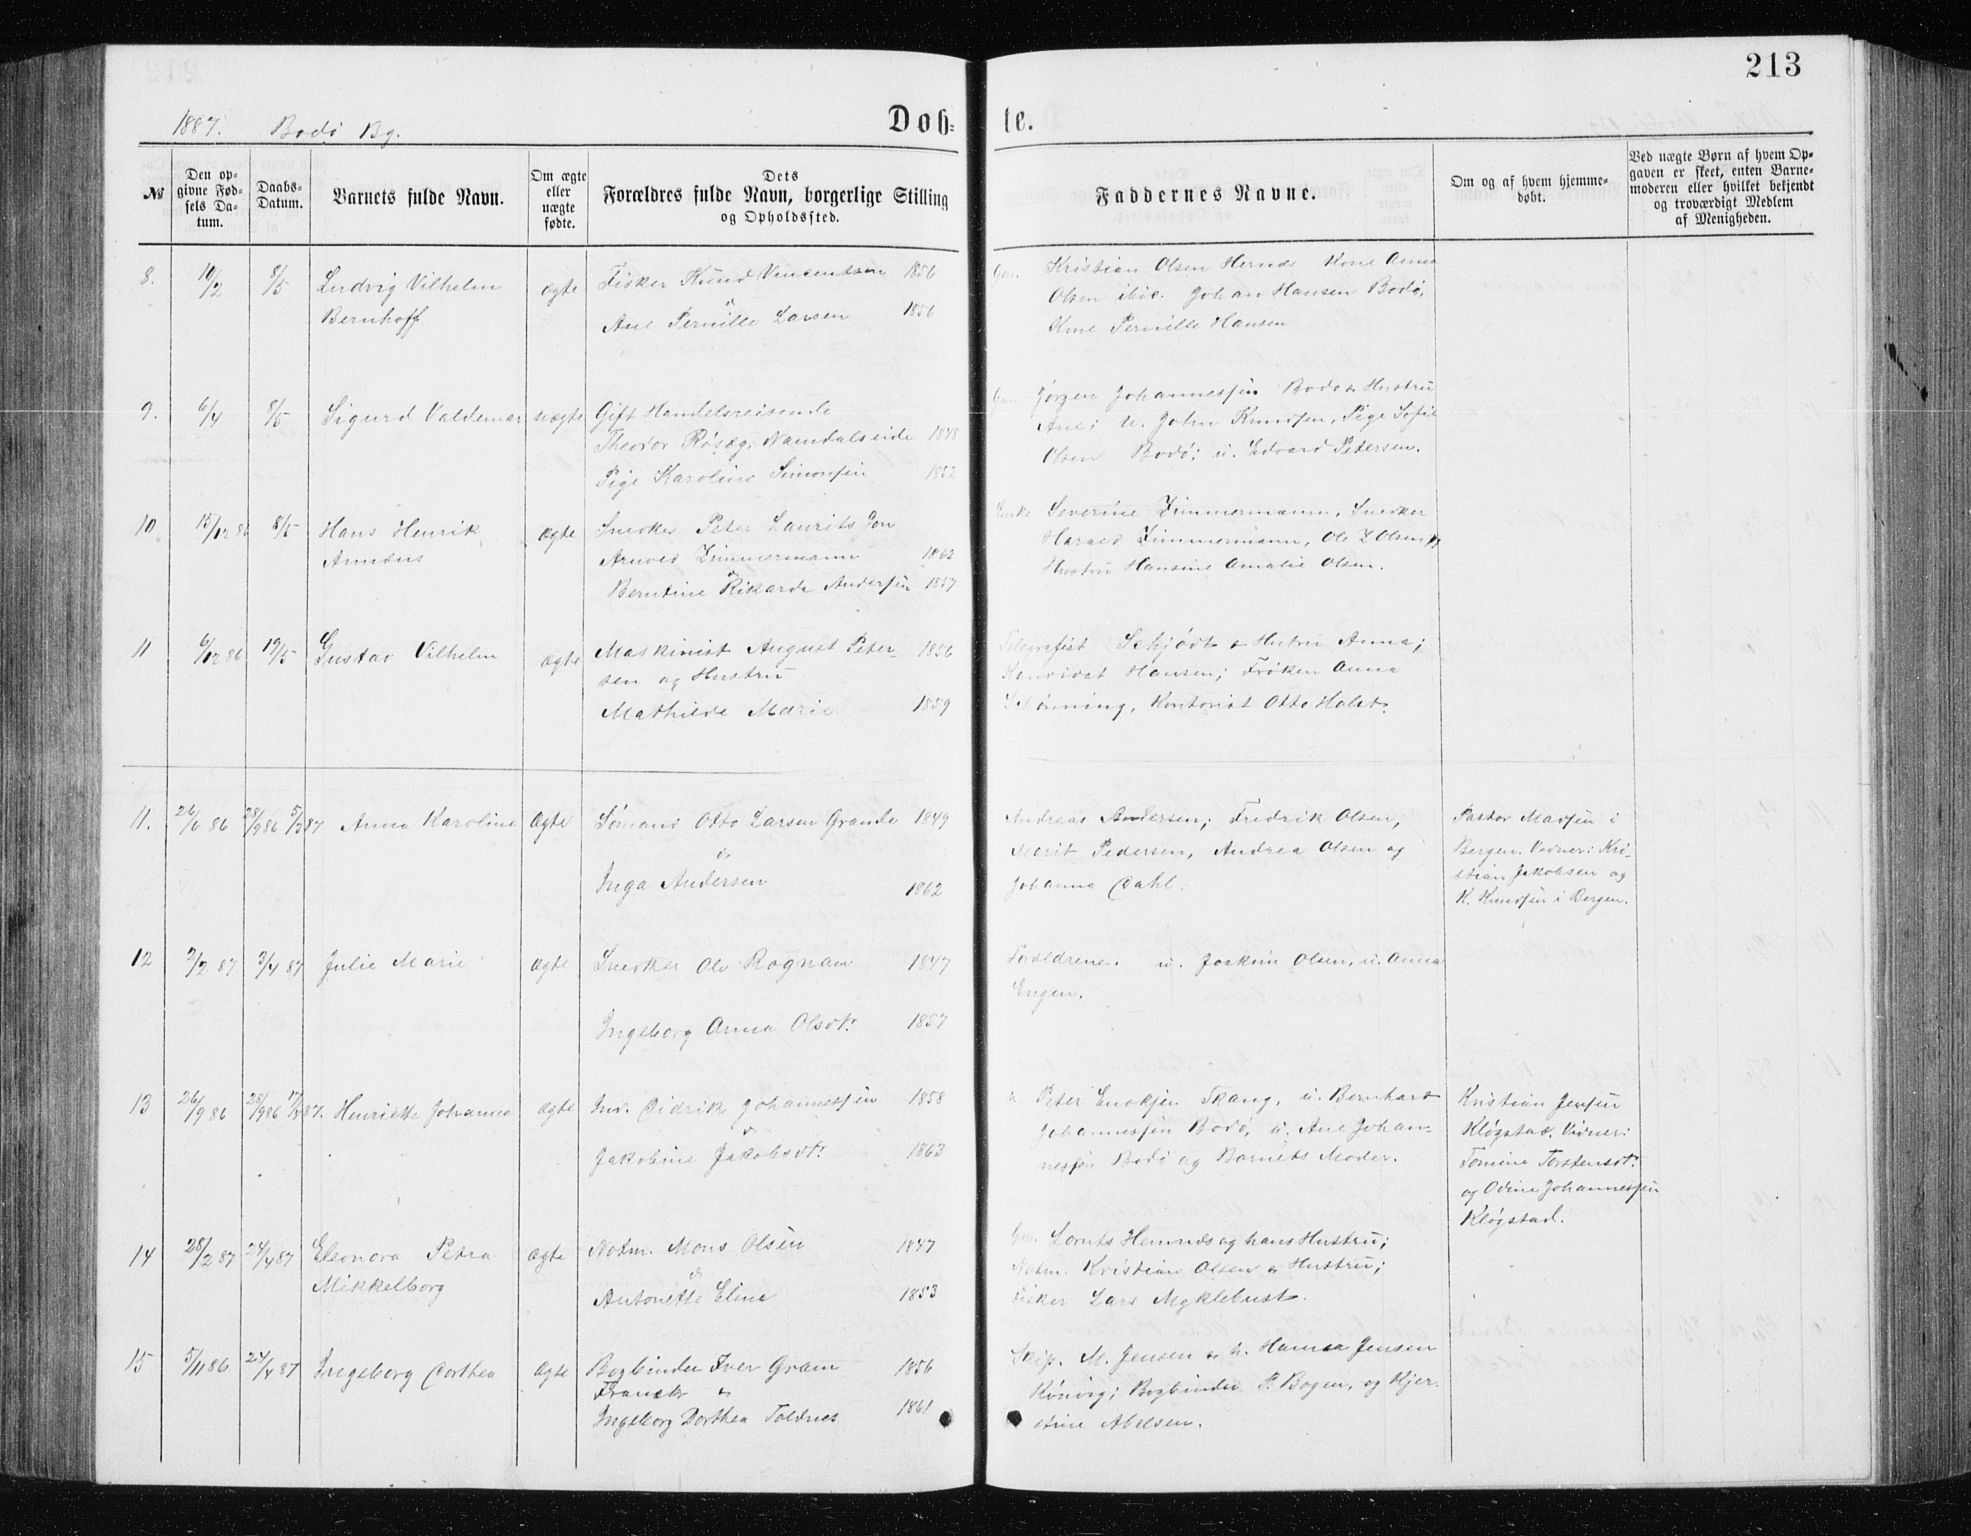 213
1887. Bodø By.
Døb=
te.
№
Den op=
givne Fød=
sels Da=
tum.
Daabs=
Datum.
Barnets fulde Navn.
Om ægte
eller
uægte
fødte.
Dets
Forældres fulde Navn, borgerlige Stilling
og Opholdssted.
Faddernes Navne.
Om og af hvem hjemme=
døbt.
Ved uægte Børn af hvem Op=
gaven er skeet, enten Barne=
moderen eller hvilket bekjendt
og troværdigt Medlem
af Menigheden.
8. 10/2 8/5 Ludvig Vilhelm ægte Fisker Knud Vincentsen 1856
Bernhoff
Ane Pernille Larsen 1856
Gm. Kristian Olsen Hernes Kone Anna
Olsen ibid. Johan Hansen Bodø,
Kone Pernille Hansen
9. 6/4 8/5 Sigurd Valdemar uægte Gift Handelsreisende
Theodor Røsæg, Namdalseide 1848
Pige Karoline Simonsen 1852
Jørgen Johannessen Bodø & Hustru
Ane; U. John Knudsen, Pige Sofie
Olsen Bodø; u. Edvard Petersen.
10 15/12 86 8/5 Hans Henrik ægte Snedker Peter Laurits Jon
Amneus
Arnved Zimmermann 1862
Berntine Rikarda Andersen 1857
Enke Severine Zimmermann, Snedker
Harald Zimmermann, Ole Z Olsen og
Hustru Hansine Amalie Olsen.
11 6/12 86 19/5 Gustav Vilhelm ægte Maskinist August Peter- 1856
sen og Hustru
Mathilde Marie 1859
Telegrafist Schjødt & Hustru Anna;
Kandidat Hansen; Frøken Anna
Schønning, Kontorist Otto Holst.
11. 26/6 86 28/9 86 5/3 87 Anna Karoline ægte Sømand Otto Larsen Grande 1849
&
Inga Andersen 1862
Andreas Andersen; Fredrik Olsen,
Marit Pedersen, Andrea Olsen og
Johanna Dahl.
Pastor Madsen i
Bergen. Vidner: Kri-
stian Jakobsen og
K. Knudsen i Bergen.
12 2/2 87 3/4 87 Julie Marie ægte Snedker Ole Rognan 1847
Ingeborg Anna Olsdtr 1857
Forældrene. u. Joakim Olsen, u. Anna
Engen.
13 26/9 86 28/9 86 17/4 87. Henriette Johanna ægte Inv. Didrik Johannessen 1858
&
Jakobine Jakobsdtr. 1863
u. Peter Enoksen Skang, u. Bernhard
Johannessen Bodø, u. Ane Johan-
nessen Bodø og Barnets Moder.
Kristian Jensen
Kløgstad. Vidner:
Tomine Torstensdtr.
og Odine Johannessen
Kløgstad.
14 28/2 87 24/4 87 Eleonora Petra ægte Notm. Mons Olsen 1847
Mikkelborg
&
Antonette Eline 1853
Gm. Lornts Hemnæs og hans Hustru;
Notm. Kristian Olsen & Hustru;
Fisker Lars Myklebust.
15 5/11 86 24/4 87 Ingeborg Dorthea ægte Bogbinder Iver Gram 1856
Franck &
Ingeborg Dorthea Toldnes 1861
Skip. M. Jensen & h. Hanna Jensen
Rønvig; Bogbinder P. Bogen, og Kjer-
stine Abelsen.